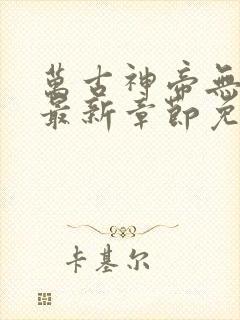 萬古神帝無
最新章節免
卡基尔